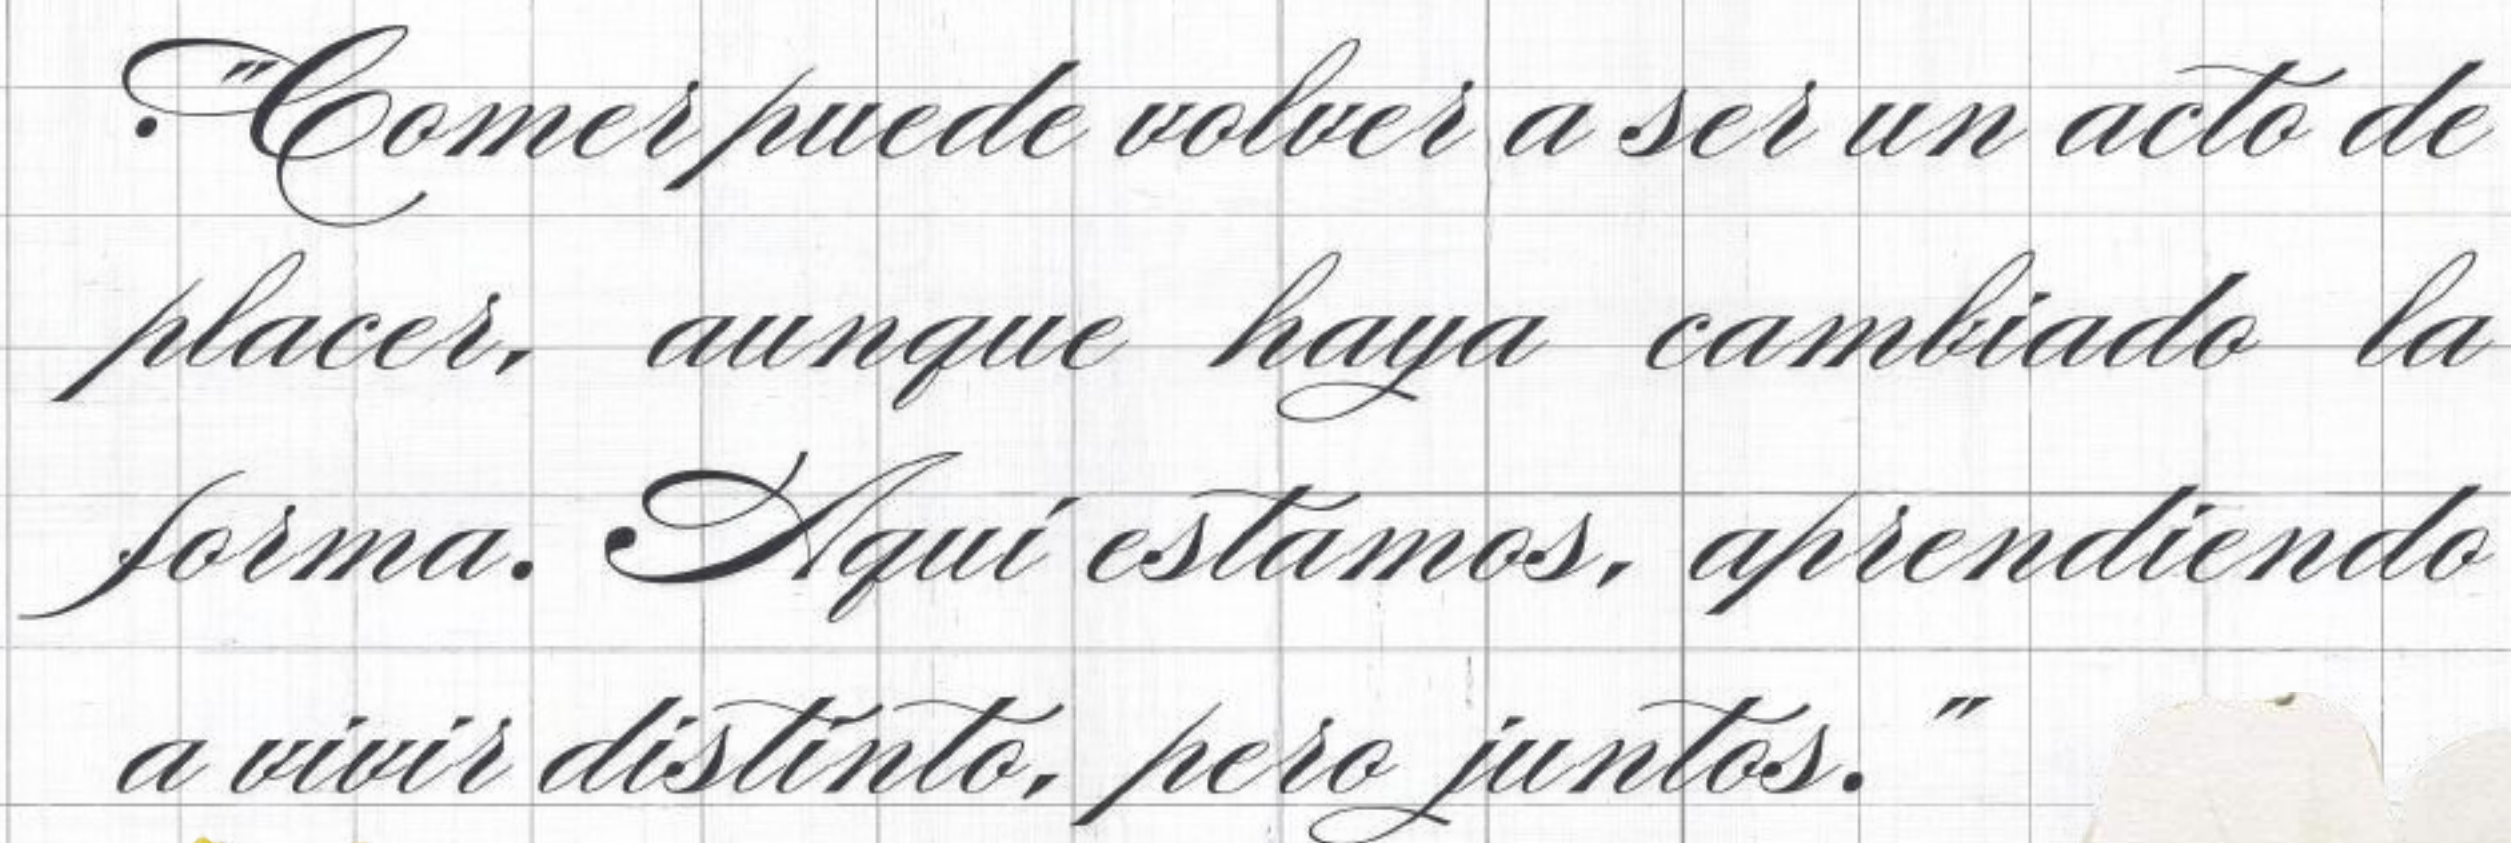 "Comer puede volver a ser un acto de
placer, aunque haya cambiado la
forma. Aquí estamos, aprendiendo
a vivir distinto, pero juntos."